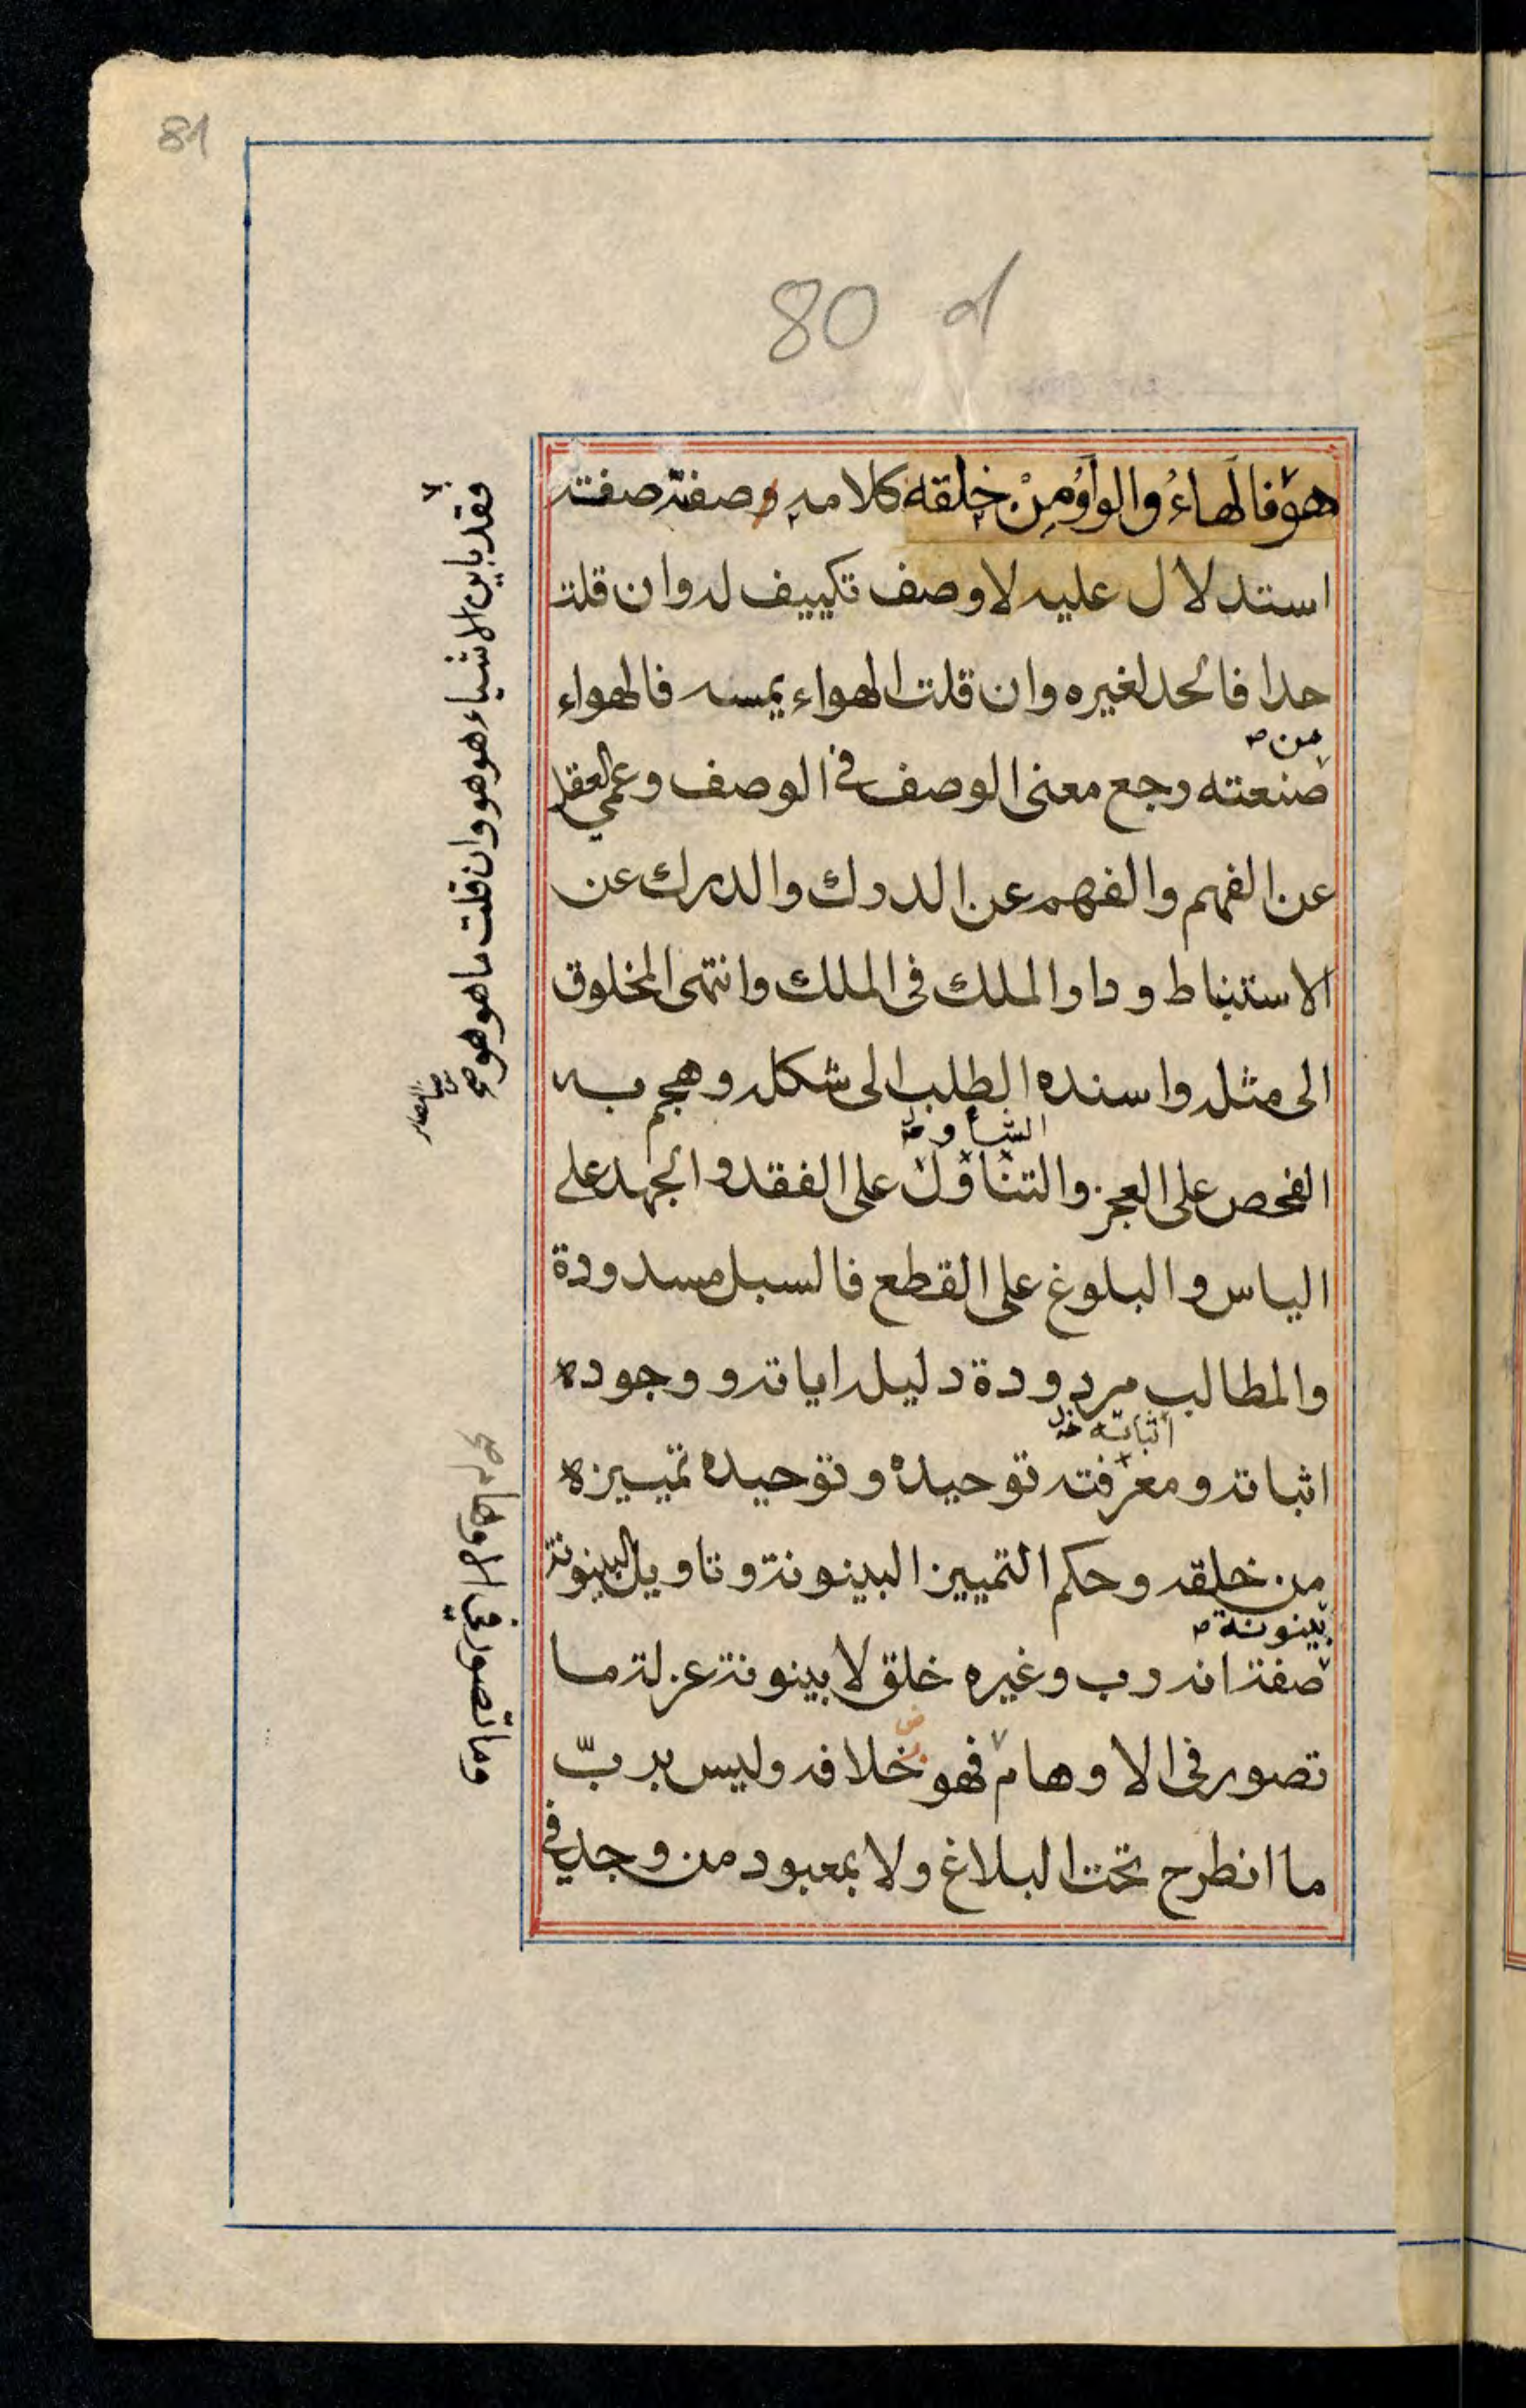 81
80
هو فالهاءُ والواوُ مِنْ خلقه كلامه وصفة صفته
استدلال عليه لا وصف تكييف له وان قلت
حدا فالحد لغيره وان قلت الهواء يمسه فالهواء
من
صنعته رجع معنى الوصف فى الوصف وعمى العقل
عن الفهم والفهم عن الدرك والدرك عن
الاستنباط ودار الملك فى الملك وانتهى المخلوق
الى مثله واسنده الطلب الى شكله وهجم به
الفحص على العجز والتناول على الفقد والجهد على
الياس والبلوغ على القطع فالسبل مسدودة
والمطالب مردودة دليله اياته ووجوده
اثباته
اثباته ومعرفته توحيده وتوحيده تمييزه
من خلقه وحكم التمييز البينونة وتاويل البينونة
بينونة
صفة انه رب وغيره خلق لا بينونة عزلة ما
تصور فى الاوهام فهو خلافه وليس بربّ
ما انطرح تحت البلاغ ولا بمعبود من وجد فى
فقد باين الاشياء هو هو وان قلت ما هو هو صح
وما تصور في الاوهام صح